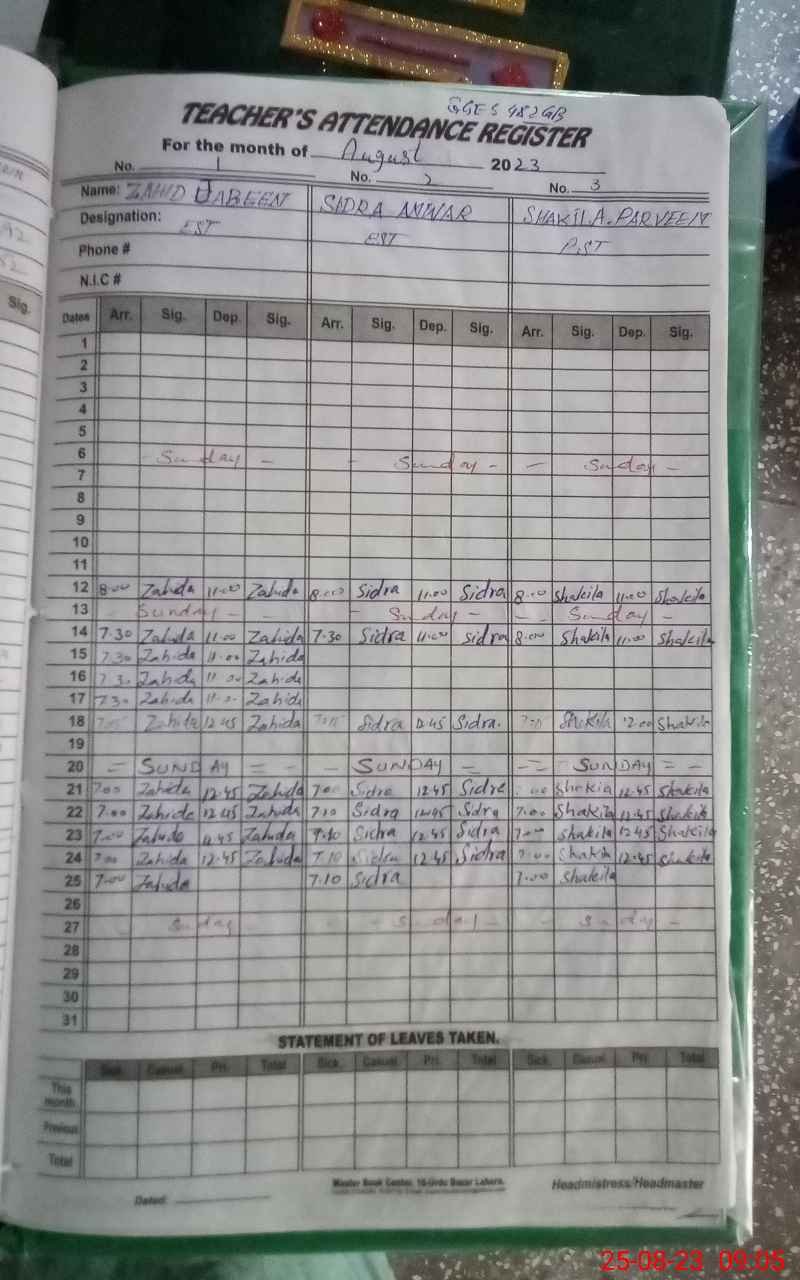 GGES 482 GB
TEACHER'S ATTENDANCE REGISTER
For the month of August 2023
No. 1 No. 2 No. 3
Name: ZAHID JABEEN SIDRA ANWAR SHAKILA PARVEEN
Designation: EST EST PST
Phone #
N.I.C #
Sig.
Dates Arr. Sig. Dep. Sig. Arr. Sig. Dep. Sig. Arr. Sig. Dep. Sig.
1
2
3
4
5
6 - Sunday - - Sunday - - Sunday -
7
8
9
10
11
12 8.00 Zahida 11.00 Zahida 8.00 Sidra 11.00 Sidra 8.00 Shakila 11.00 Shakila
13 - Sunday - - Sunday - - Sunday -
14 7.30 Zahida 11.00 Zahida 7.30 Sidra 11.00 Sidra 8.00 Shakila 11.00 Shakila
15 7.30 Zahida 11.00 Zahida
16 7.30 Zahida 11.00 Zahida
17 7.30 Zahida 11.00 Zahida
18 Zahida 12.45 Zahida Sidra 12.45 Sidra. Shakila 12.00 Shakila
19
20 = SUNDAY = - SUNDAY = = SUNDAY = -
21 7.00 Zahida 12.45 Zahida 7.00 Sidra 12.45 Sidra Shakila 12.45 Shakila
22 7.00 Zahida 12.45 Zahida 7.10 Sidra 12.45 Sidra 7.00 Shakila 12.45 Shakila
23 7.00 Zahida 12.45 Zahida 7.10 Sidra 12.45 Sidra 7.00 Shakila 12.45 Shakila
24 7.00 Zahida 12.45 Zahida 7.10 Sidra 12.45 Sidra 7.00 Shakila 12.45 Shakila
25 7.00 Zahida 7.10 Sidra 7.00 Shakila
26
27 Sunday - - Sunday - - Sunday -
28
29
30
31
STATEMENT OF LEAVES TAKEN.
Sick. Casual. Pri. Total Sick. Casual. Pri. Total Sick. Casual. Pri. Total
This month
Previous
Total
Master Book Center, 16-Urdu Bazar Lahore.
Dated: Headmistress/Headmaster
25-08-23 09:05